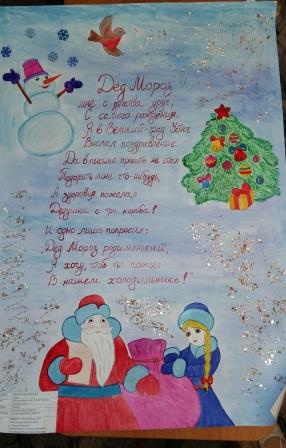 Дед Мороз
мне с детства друг,
С самого рождения.
Я в Великий град Устюг
Выслал поздравление.
Да в письме просить не стал
Подарить мне что-нибудь,
А здоровья пожелал
Дедушке с три короба!
И одно лишь попросил:
Дед Мороз родименький,
Я хочу, чтоб ты пожил
В нашем холодильнике!